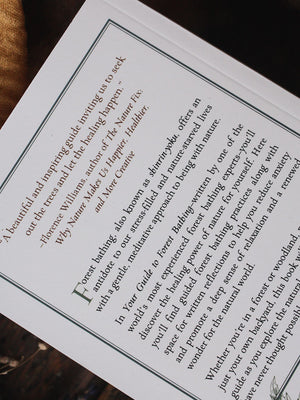 "A beautiful and inspiring guide inviting us to seek
out the trees and let the healing happen."
–Florence Williams, author of The Nature Fix:
Why Nature Makes Us Happier, Healthier,
and More Creative
Forest bathing, also known as shinrin-yoku, offers an
antidote to our stress-filled and nature-starved lives
with a gentle, meditative approach to being with nature.
In Your Guide to Forest Bathing–written by one of the
world's most experienced forest bathing experts–you'll
discover the healing power of nature for yourself. Here
you'll find guided forest bathing practices along with
space for written reflections to help you reduce anxiety
and promote a deep sense of relaxation and a renewed
wonder for the natural world.
Whether you're in a forest or woodland,
just your own backyard, this book
guide as you explore the natural
have never thought possible